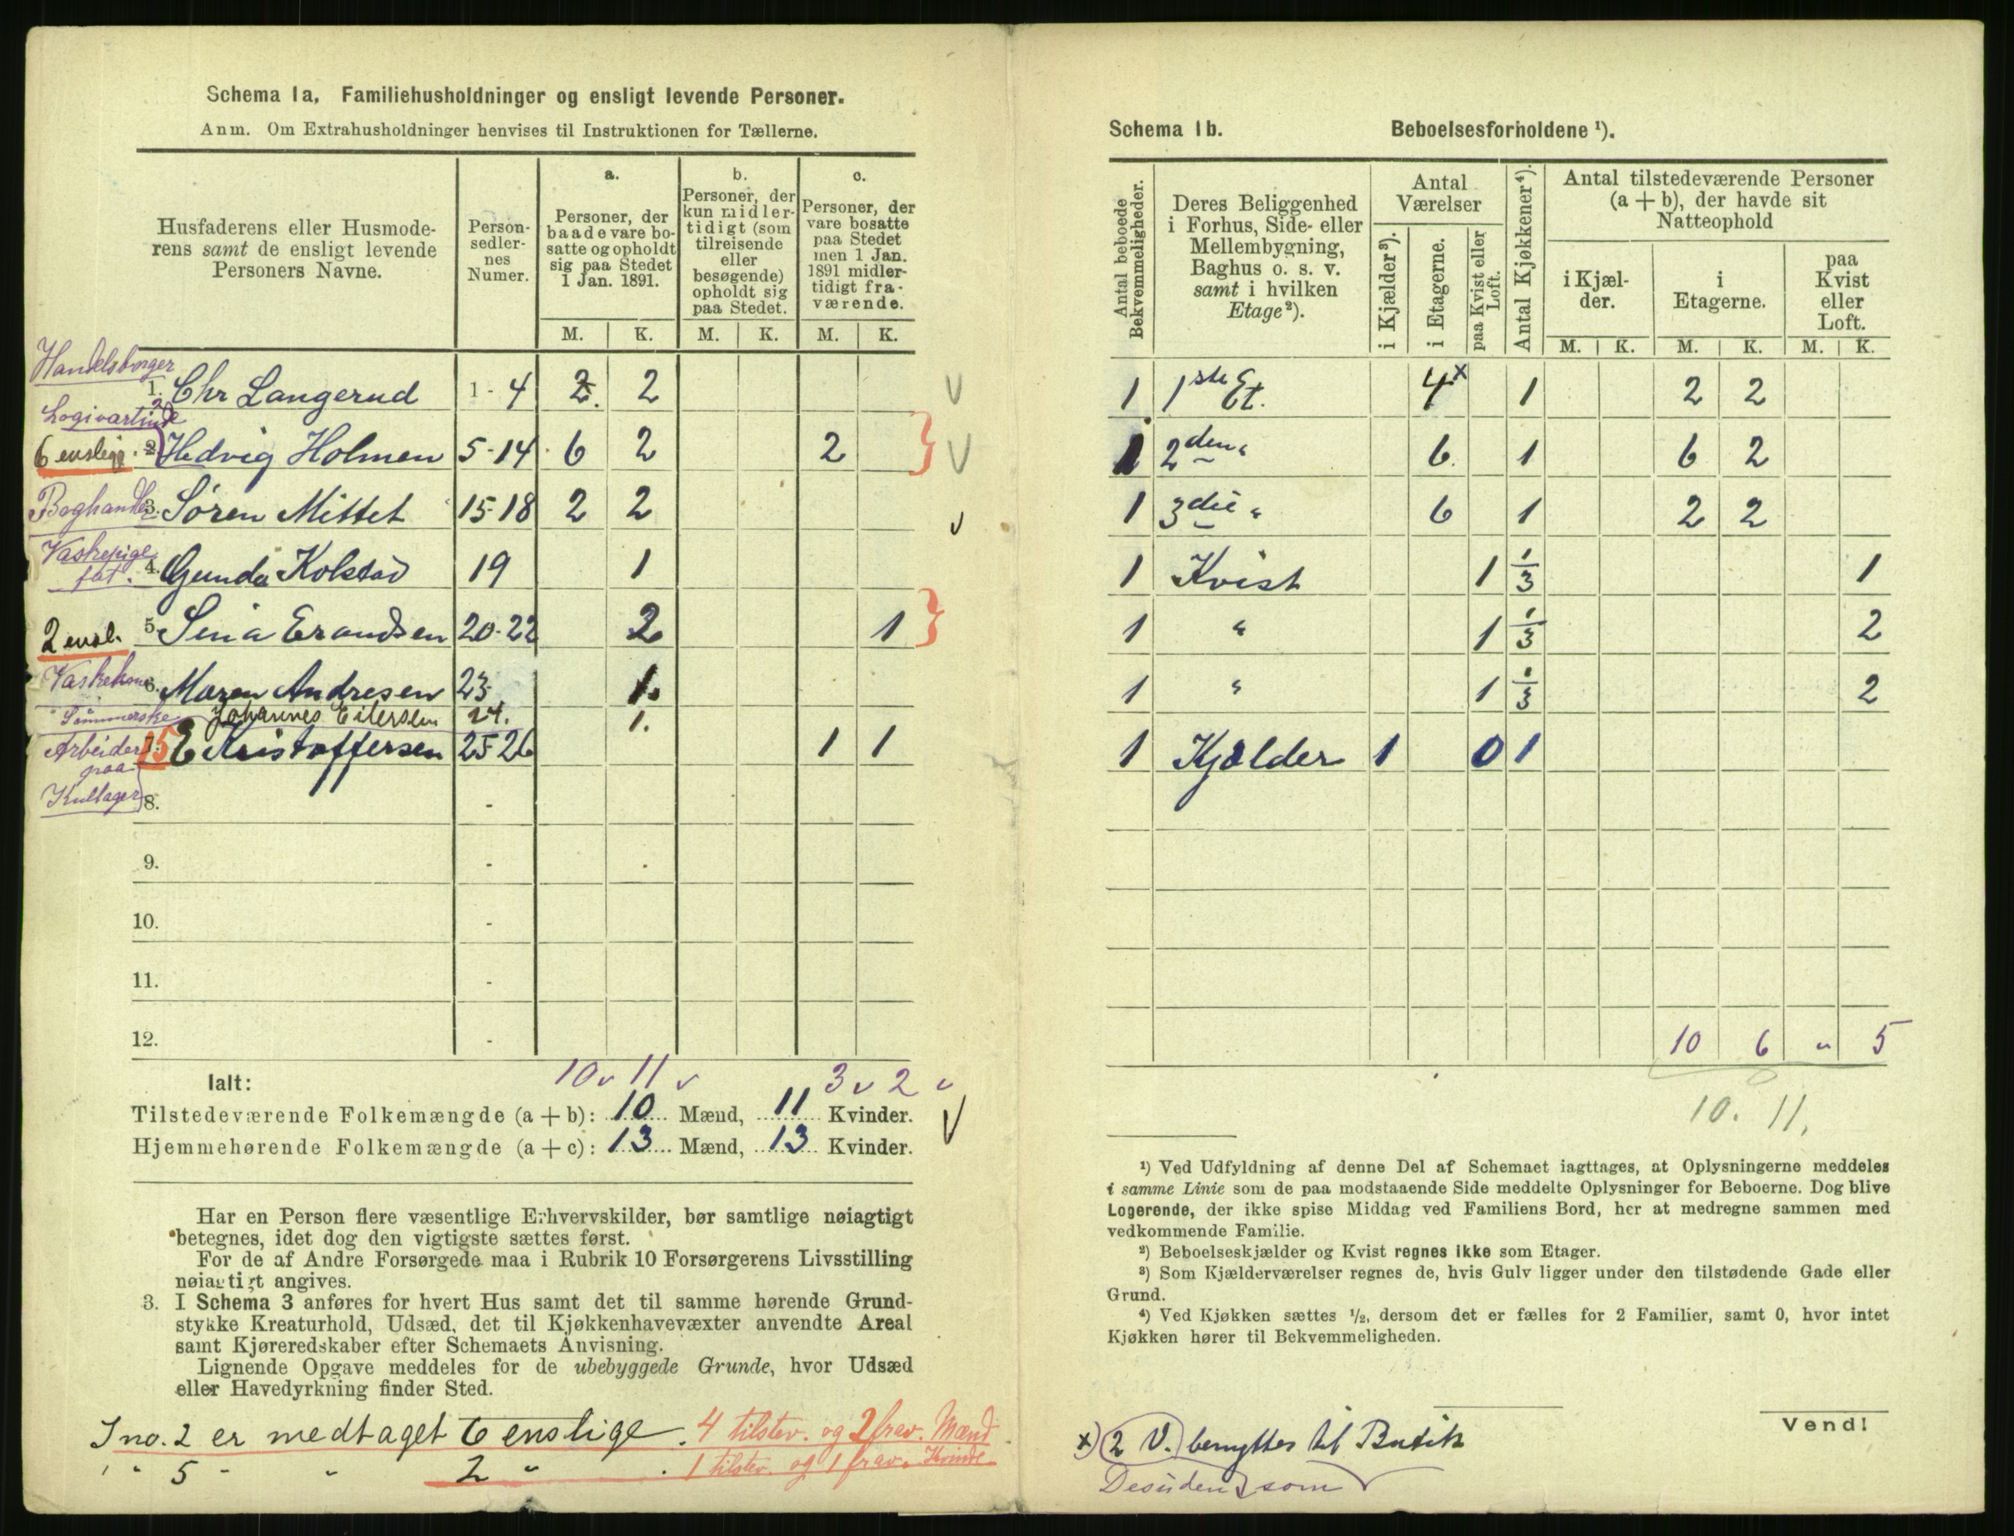 Schema 1a. Familiehusholdninger og ensligt levende Personer.
Anm. Om Extrahusholdninger henvises til Instruktionen for Tællerne.
Husfaderens eller Husmode-
rens samt de ensligt levende
Personers Navne.
Person-
sedler-
nes
Numer.
a.
Personer, der
baade vare bo-
satte og opholdt
sig paa Stedet
1 Jan. 1891.
b.
Personer, der
kun midler-
tidigt (som
tilreisende
eller
besøgende)
opholdt sig
paa Stedet.
c.
Personer, der
vare bosatte
paa Stedet
men 1 Jan.
1891 midler-
tidigt fra-
værende.
M. K. M. K. M. K.
Handelsborger
1. Chr Langerud 1-4 2. 2
Logivartinde
6 enslige. 2. Hedvig Holmen 5-14 6 2 2
Boghandler 3. Søren Mittet 15-18 2 2
Vaskepige
fat. 4. Gunda Kolstad 19 1
2 ensl. 5. Sina Erandsen 20-22 2 1
Vaskekone 6. Maren Andresen 23 1.
Sømmerske Johannes Eilersen 24. 1.
Arbeider 7. 15 E Kristoffersen 25-26 1 1
paa
Kullager 8. -
9. -
10. -
11. -
12. -
Ialt: 10 v 11 v 3 v 2 v
Tilstedeværende Folkemængde (a + b): 10 Mænd, 11 Kvinder.
Hjemmehørende Folkemængde (a + c): 13 Mænd, 13 Kvinder.
Har en Person flere væsentlige Erhvervskilder, bør samtlige nøiagtigt
betegnes, idet dog den vigtigste sættes først.
For de af Andre Forsørgede maa i Rubrik 10 Forsørgerens Livsstilling
nøiagtigt angives.
3. I Schema 3 anføres for hvert Hus samt det til samme hørende Grund-
stykke Kreaturhold, Udsæd, det til Kjøkkenhavevæxter anvendte Areal
samt Kjøreredskaber efter Schemaets Anvisning.
Lignende Opgave meddeles for de ubebyggede Grunde, hvor Udsæd
eller Havedyrkning finder Sted.
I no. 2 er medtaget 6 enslige. 4 tilstev. og 2 frav. Mænd
" " 5 " " 2 " . 1 tilstev. og 1 frav. Kvinde
Schema 1b. Beboelsesforholdene ¹).
Antal beboede
Bekvemmeligheder.
Deres Beliggenhed
i Forhus, Side- eller
Mellembygning,
Baghus o. s. v.
samt i hvilken
Etage²).
Antal
Værelser
i Kjælder³).
i Etagerne.
paa Kvist eller
Loft.
Antal Kjøkkener⁴).
Antal tilstedeværende Personer
(a + b), der havde sit
Natteophold
i Kjæl-
der.
i
Etagerne.
paa
Kvist
eller
Loft.
M. K. M. K. M. K.
1 1ste Et. 4x 1 2 2
1 2den " 6. 1 6 2
1 3die " 6 1 2 2
1 Kvist 1 1/3 1
1 " 1 1/3 2
1 " 1 1/3 2
1 Kjælder 1 0 1
10 6 " 5
10. 11.
¹) Ved Udfyldning af denne Del af Schemaet iagttages, at Oplysningerne meddeles
i samme Linie som de paa modstaaende Side meddelte Oplysninger for Beboerne. Dog blive
Logerende, der ikke spise Middag ved Familiens Bord, her at medregne sammen med
vedkommende Familie.
²) Beboelseskjælder og Kvist regnes ikke som Etager.
³) Som Kjælderværelser regnes de, hvis Gulv ligger under den tilstødende Gade eller
Grund.
⁴) Ved Kjøkken sættes ½, dersom det er fælles for 2 Familier, samt 0, hvor intet
Kjøkken hører til Bekvemmeligheden.
Vend!
x) 2 V. benyttes til Butik
Desuden som